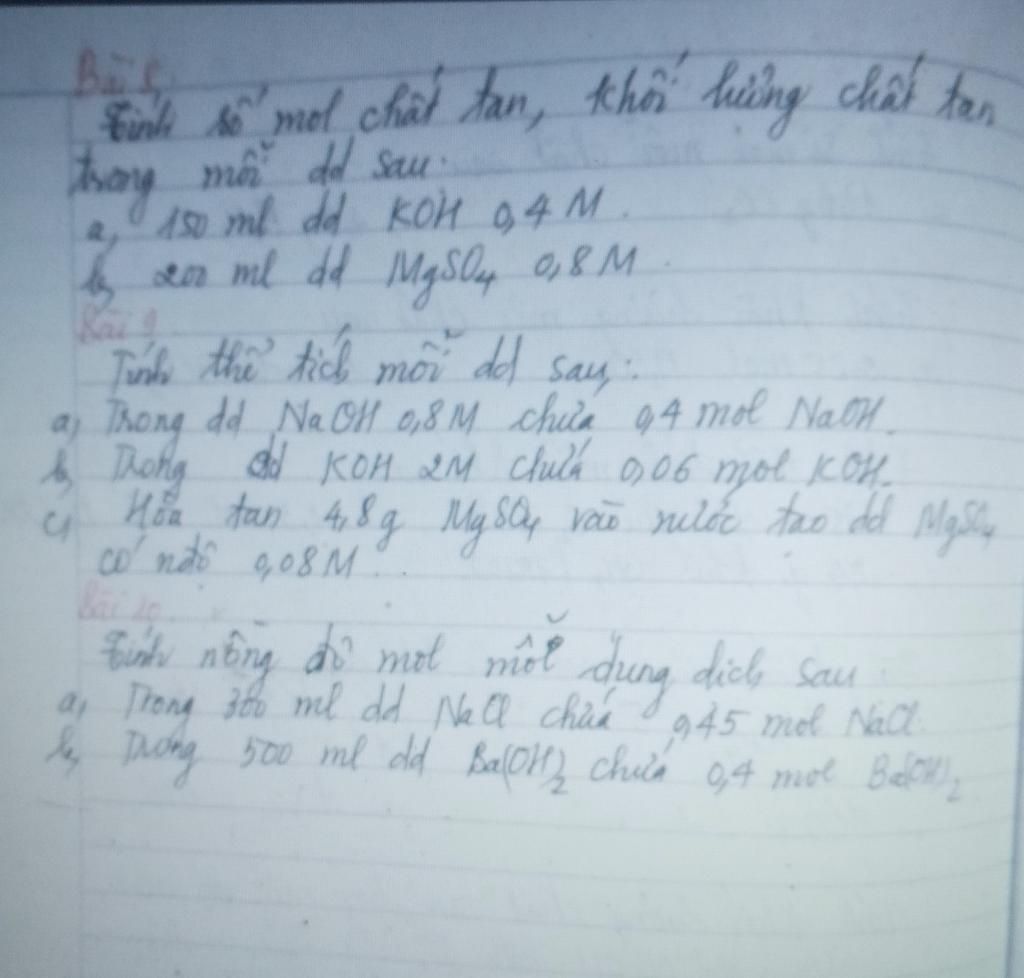 Bài 8,
Tính số mol chất tan, khối lượng chất tan
trong mỗi dd sau:
a, 150 ml dd KOH 0,4 M.
b, 200 ml dd MgSO4 0,8 M.
Bài 9
Tính thể tích mỗi dd sau:
a, Trong dd NaOH 0,8M chứa 0,4 mol NaOH.
b, Trong dd KOH 2M chứa 0,06 mol KOH.
c, Hòa tan 4,8g MgSO4 vào nước tạo dd MgSO4
có nđộ 0,08M..
Bài 10.
Tính nồng độ mol mỗi dung dịch sau
a, Trong 300 ml dd NaCl chứa 0,45 mol NaCl.
b, Trong 500 ml dd Ba(OH)2 chứa 0,4 mol Ba(OH)2